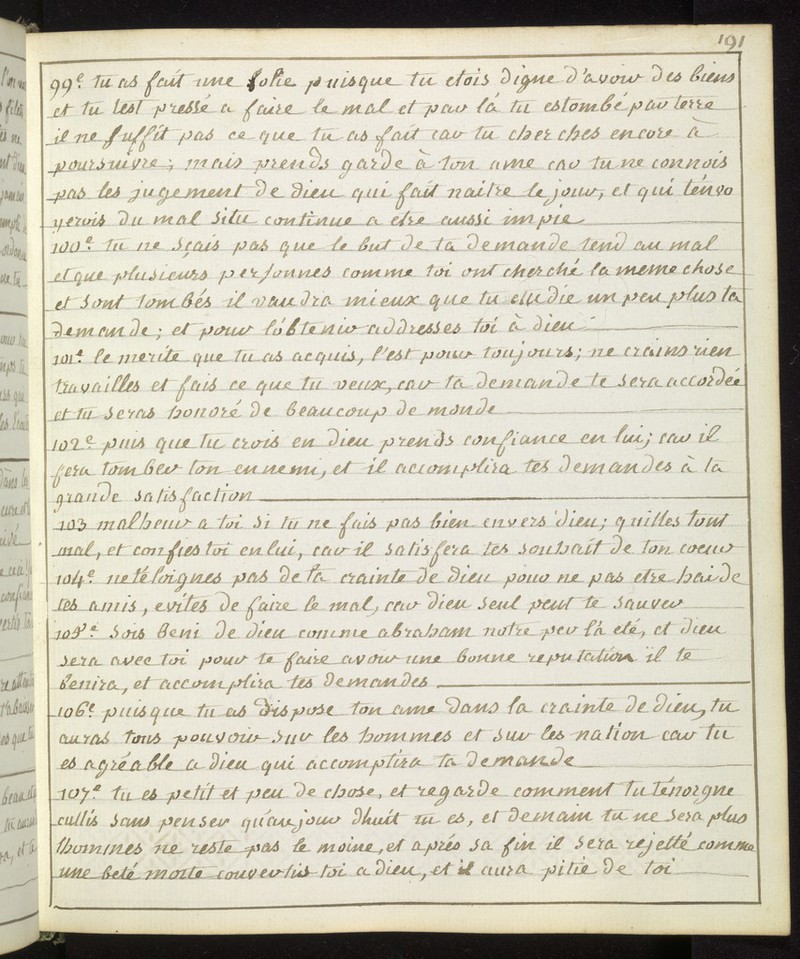 191
99e. tu as fait une folie puisque tu etois digne d'avoir des biens
et tu t'est pressé a faire le mal et par là tu estombé par terre
il ne suffit pas ce que tu as fait car tu cherches encore à
poursuivre; mais prends garde à ton ame car tu ne connois
pas les jugement de dieu qui fait naitre le jour, et qui t'envo
yerois du mal situ continue a etre aussi impie
100e. tu ne sçais pas que le but de ta demande tend au mal
et que plusieurs personnes comme toi ont cherché la meme chose
et sont tombés il vaudra mieux que tu etudie un peu plus ta
demande; et pour l'obtenir addresses toi à dieu
101e. le merite que tu as acquis, l'est pour toujours; ne crains rien
travailles et fais ce que tu veux, car ta demande te sera accordée
et tu seras honoré de beaucoup de monde
102e. puis que tu crois en dieu prends confiance en lui; car il
fera tomber ton ennemi, et il accomplira tes demandes à ta
grande satisfaction
103 malheur a toi si tu ne fais pas bien envers dieu; quittes tout
mal, et confies toi en lui, car il satisfera tes souhait de ton coeur
104e. net'éloignes pas de la crainte de dieu pour ne pas etre hai de
tes amis, evites de faire le mal, car dieu seul peut te sauver
105e. sois beni de dieu comme abraham notre per l'a eté, et dieu
sera avec toi pour te faire avoir une bonne reputation il te
benira, et accomplira tes demandes
106e. puisque tu as dispose ton ame dans la crainte de dieu, tu
auras tous pouvoir sur les hommes et sur les nation car tu
es agréable a dieu qui accomplira ta demande
107e. tu es petit et peu de chose, et regarde comment tu t'énorgne
cullis sans penser qu'aujour dhuit tu es, et demain tu ne sera plus
thommes ne reste pas le moine, et aprés sa fin il sera rejetté comme
une beté morte convertis toi a dieu, et il aura pitie de toi